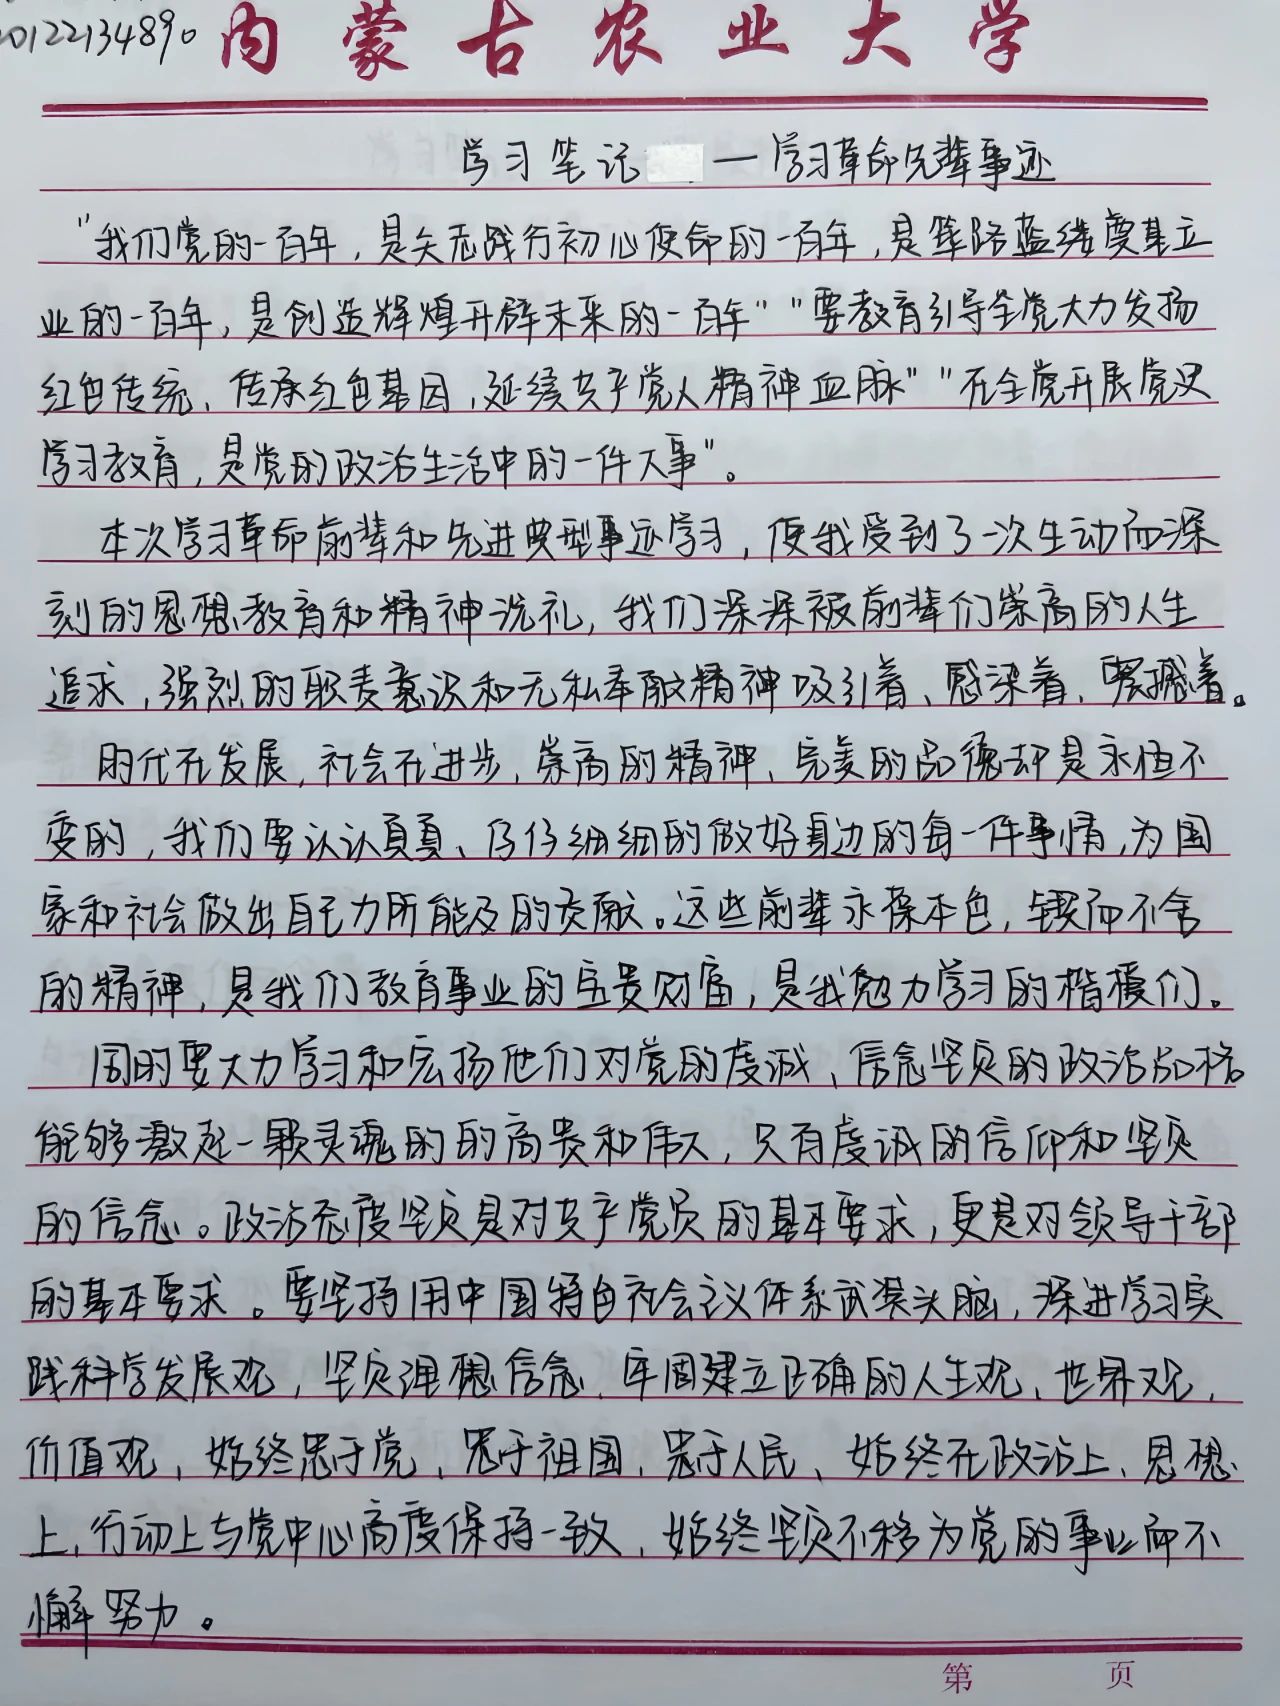 20122134890
内蒙古农业大学
学习笔记 — 学习革命先辈事迹
"我们党的一百年，是矢志践行初心使命的一百年，是筚路蓝缕奠基立
业的一百年，是创造辉煌开辟未来的一百年""要教育引导全党大力发扬
红色传统、传承红色基因，延续共产党人精神血脉""在全党开展党史
学习教育，是党的政治生活中的一件大事"。
本次学习革命前辈和先进典型事迹学习，使我受到了一次生动而深
刻的思想教育和精神洗礼，我们深深被前辈们崇高的人生
追求，强烈的职责意识和无私奉献精神吸引着、感染着、震撼着。
时代在发展，社会在进步，崇高的精神、完美的品德却是永恒不
变的，我们要认认真真、仔仔细细的做好身边的每一件事情，为国
家和社会做出自己力所能及的贡献。这些前辈永葆本色，锲而不舍
的精神，是我们教育事业的宝贵财富，是我勉力学习的楷模们。
同时要大力学习和宏扬他们对党的虔诚、信念坚贞的政治品格
能够激起一颗灵魂的的高贵和伟大，只有虔诚的信仰和坚贞
的信念。政治态度坚贞是对共产党员的基本要求，更是对领导干部
的基本要求。要坚持用中国特色社会主义体系武装头脑，深进学习实
践科学发展观，坚贞理想信念、牢固建立正确的人生观、世界观，
价值观、始终忠于党、忠于祖国、忠于人民、始终在政治上、思想
上、行动上与党中心高度保持一致、始终坚贞不移为党的事业而不
懈努力。
第 页